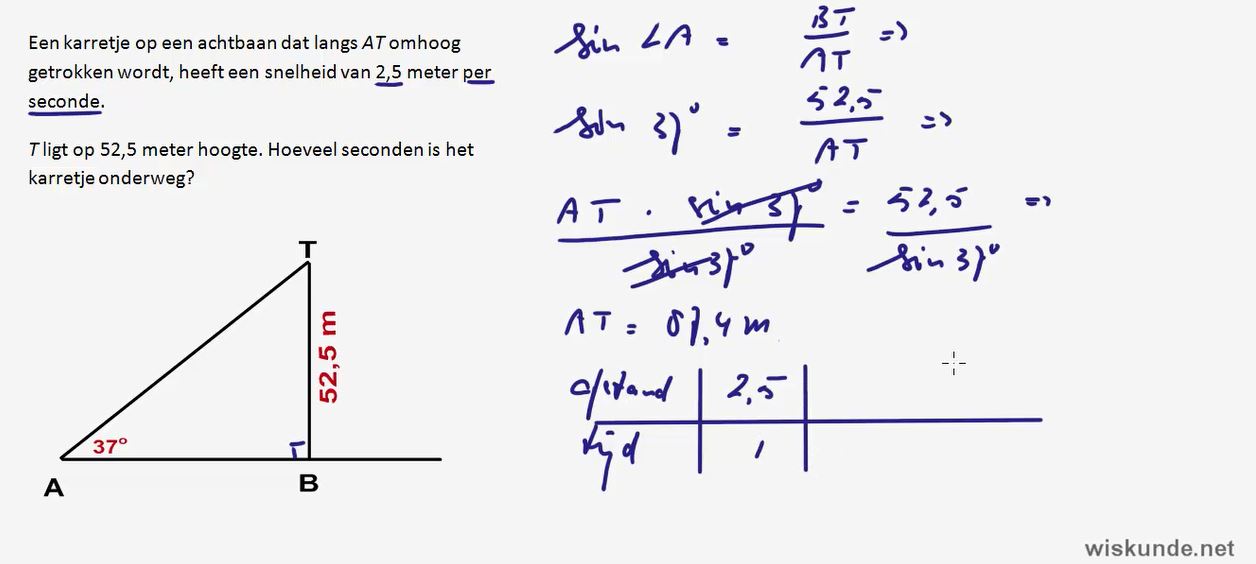 Een karretje op een achtbaan dat langs AT omhoog
getrokken wordt, heeft een snelheid van 2,5 meter per
seconde.
T ligt op 52,5 meter hoogte. Hoeveel seconden is het
karretje onderweg?
T
52,5 m
37°
A
B
sin ∠A = BT / AT =>
sin 37° = 52,5 / AT =>
AT . sin 37° / sin 37° = 52,5 / sin 37° =>
AT = 87,4 m
afstand | 2,5 |
tijd | 1 |
wiskunde.net